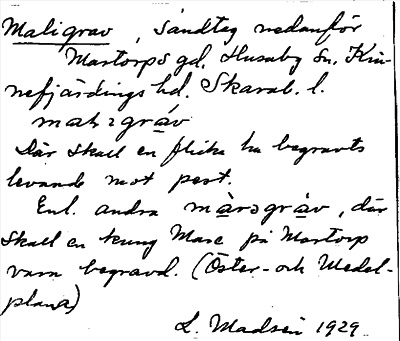 Maligrav, sandtag nedanför
Martorps gd, Husaby sn, Kin-
nefjärdings hd. Skarab. l.
malıgrav
Där skall en flicka ha begravts
levande mot pest.
Enl. andra màrəgràv, där
skall en kung Mare på Martorp
vara begravd. (Öster- och Medel-
plana)
L. Madsén 1929